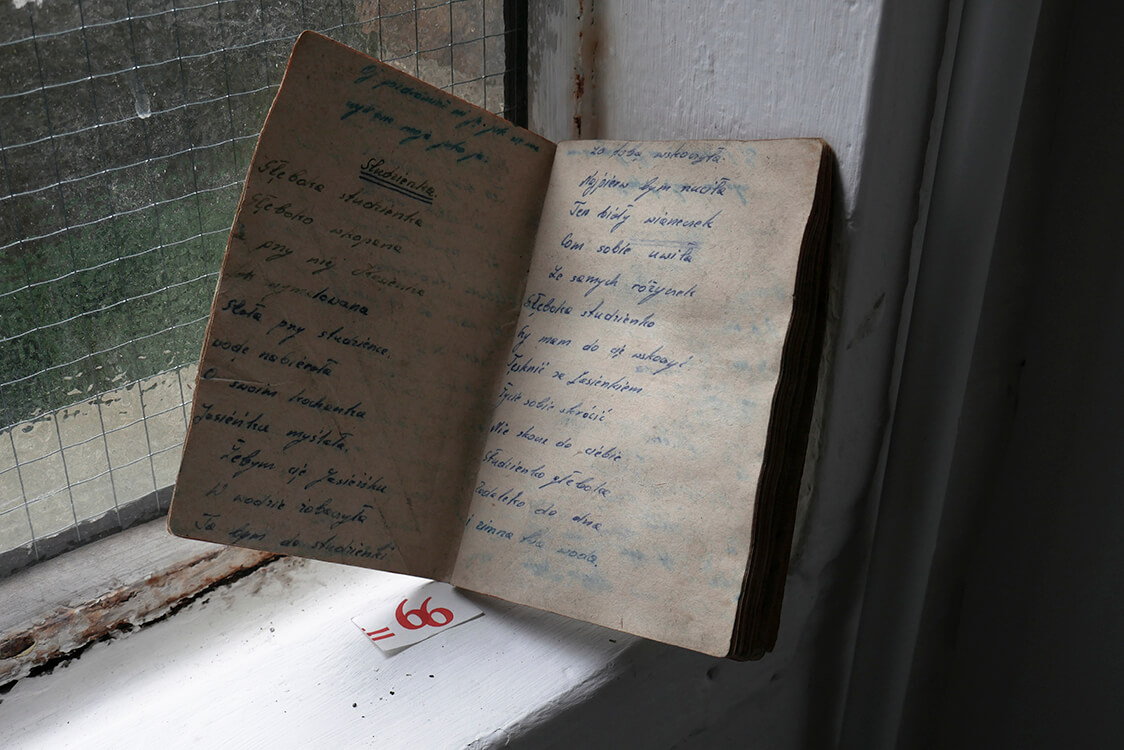 Studzienka
Głęboka studzienka
Głęboko wkopana
przy niej Kasieńka
wymalowana
Stała przy studzience
wodę nabierała
O swoim kochanku
Jasieńku myślała.
Żebym cię Jasieńku
W wodzie zobaczyła
To bym do studzienki
za tobą wskoczyła.
Najpierw bym rzuciła
Ten biały wianeczek
Com sobie uwiła
Ze samych różyczek
Głęboka studzienko
Czy mam do cię wskoczyć
Tęsknić za Jasieńkiem
Życie sobie skrócić
Nie skoczę do ciebie
Studzienko głęboka
Daleko do dna
i zimna woda.
66